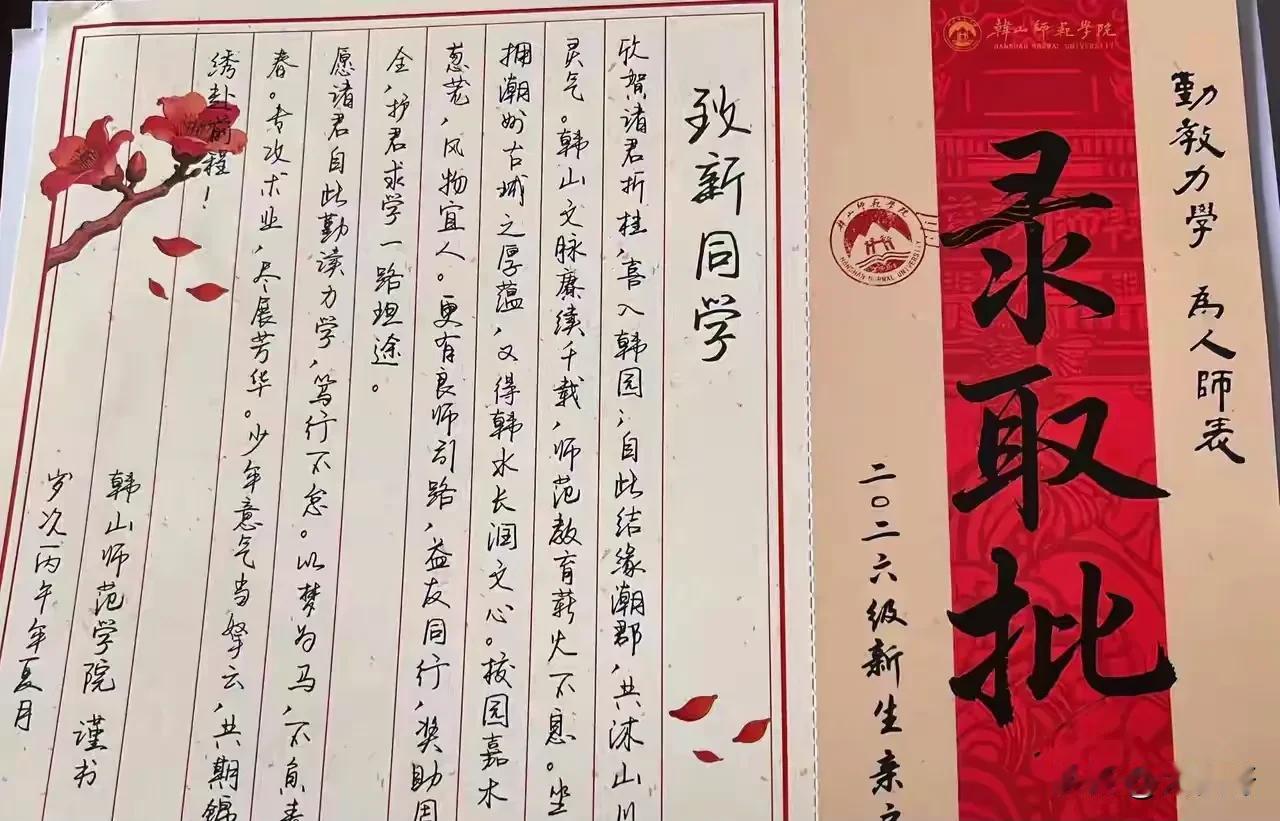 韩山师范学院
HANSHAN NORMAL UNIVERSITY
勤教力学 為人師表
录取批
韩山师范学院
HANSHAN NORMAL UNIVERSITY
二〇二六级新生亲
致新同学
欣贺诸君折桂，喜入韩园；自此结缘潮郡，共沐山川
灵气。韩山文脉赓续千载，师范教育薪火不息。坐
拥潮州古城之厚蕴，又得韩水长润文心。校园嘉木
葱茏，风物宜人。更有良师引路，益友同行，奖助周
全，护君求学一路坦途。
愿诸君自此勤读力学，笃行不怠。以梦为马，不负青
春。专攻术业，尽展芳华。少年意气当拏云，共期锦
绣赴前程！
韩山师范学院 谨书
岁次丙午年夏月